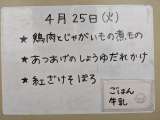 4月25日(火)
★鶏肉とじゃがいもの煮もの
★あつあげのしょうゆだれかけ
★紅ざけそぼろ
ごはん
牛乳